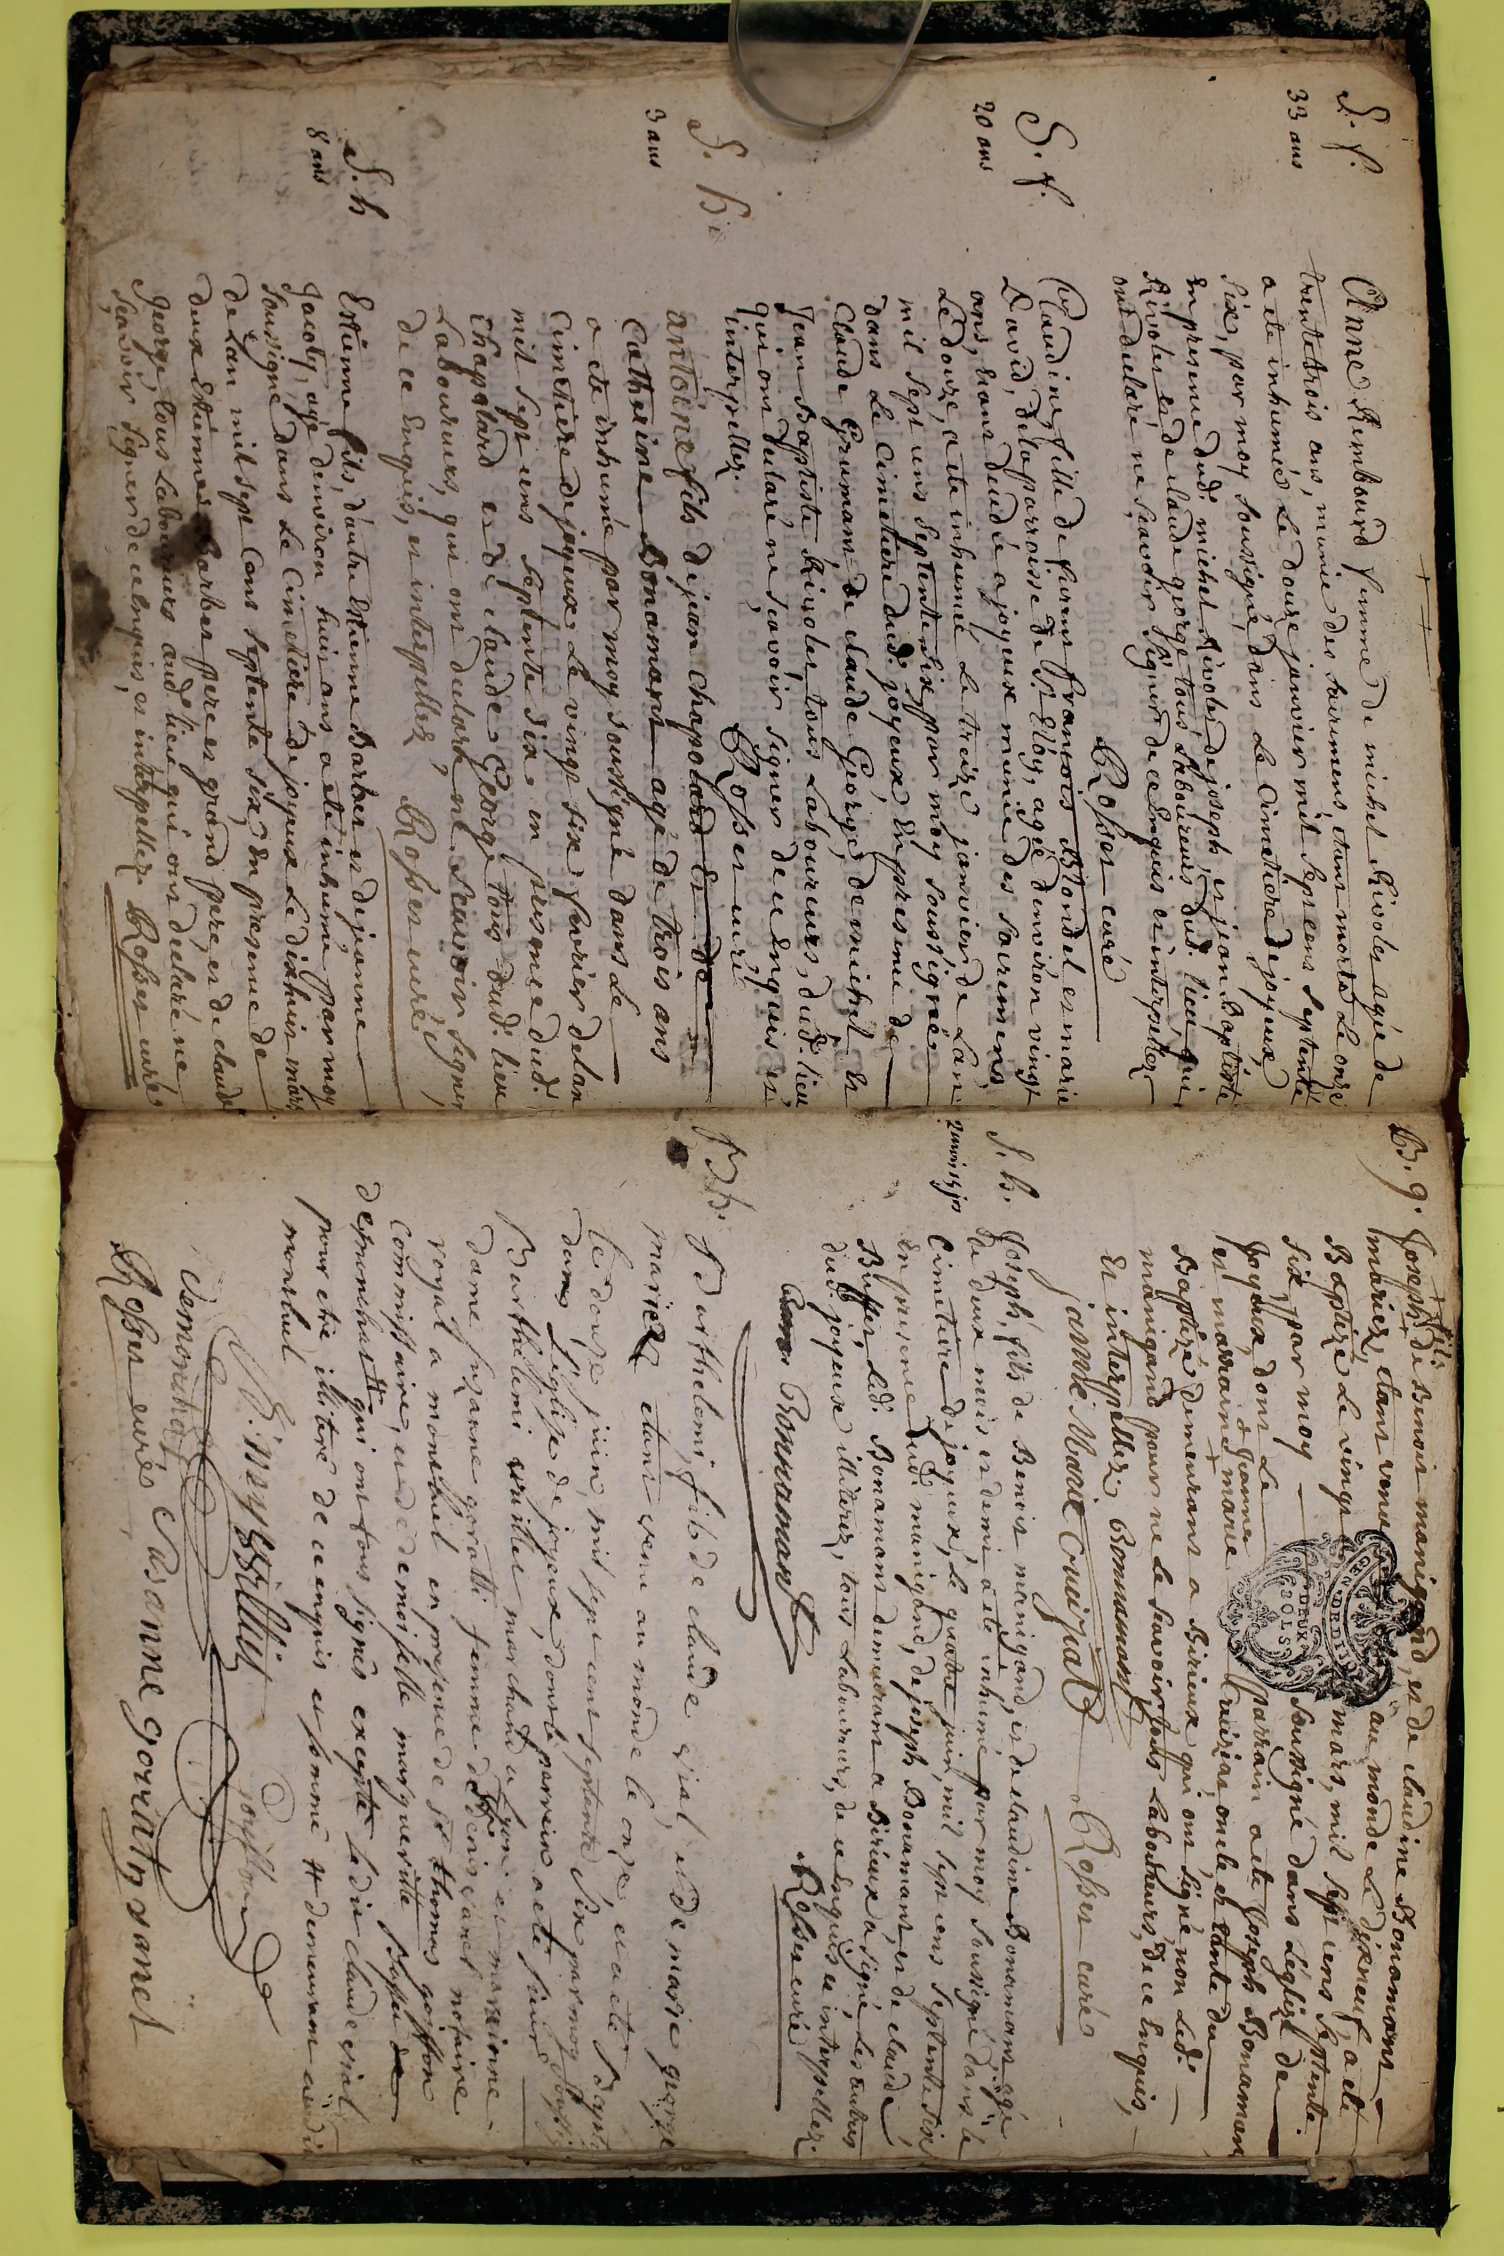 S. f.
33 ans
Anne Rimbourd femme de michel Rivolet agée de
trente trois ans, munie des sacremens, etant morte le onze
a été inhumée le douze janvier mil sept cens septente
six, par moy soussigné, dans le Cimetiere de joyeux
en presence dud. michel Rivolet de joseph, et jean Baptiste
Rivolet et de claude george tous Laboureurs dud. lieu qui
ont declaré ne sçavoir signer de ce Enquis et interpellez.
Rosset curé
S. f.
20 ans
Claudine fille de françois Blondel, et marie
David, de la parroisse de St Eloy, agée d'environ vingt
ans, etant decedée a joyeux munie des sacremens
Le douze, a été inhumée Le treize janvier de Lan
mil sept cens septente six par moy soussigné
dans Le Cimetiere dud. joyeux, En presence de
Claude Grumant, de claude George, de michel et
Jean Baptiste Rivolet tous Laboureurs, dud. lieu
qui ont declaré ne sçavoir signer de ce Enquis et
interpellez.
Rosset curé
S. h
3 ans
antoine fils de jean chapolard Et de
Catherine Bonamant agé de trois ans
a été inhumé par moy soussigné dans Le
Cimetiere de joyeux Le vingt six fevrier de lan
mil sept cens septente six, en presence dud.
chapolard et de claude George tous dud. lieu
Laboureurs, qui ont declaré ne sçavoir signer
de ce Enquis, et interpellez.
Rosset curé
S. h
8 ans
Estienne fils, d'autre Estienne Barbet et de jeanne
Jacoty, agé d'environ huit ans a été inhumé par moy
soussigné dans Le Cimetiere de joyeux Le dixhuit mars
de Lan mil sept Cens septente six, En presence de
deux Estiennes Barbet pere et grand pere, et de claude
George tous Laboureurs aud. lieu qui ont declaré ne
sçavoir signer de ce enquis, et interpellez
Rosset curé
B. g.
Joseph fils de Benoit manigand, et de claudine Bonamant
mariez, etant venu au monde Le dixneuf, a eté
Baptizé Le vingt mars, mil sept cens septente
six par moy soussigné dans L'église de
Joyeux, dont Le parrain a eté Joseph Bonamant
et marraine marie & Jeanne Cruiziat oncle et tante du
Baptizé demeurans a Birieux qui ont signé, non Led.
manigand pour ne le sçavoir tous Laboureurs, de ce Enquis,
et interpellez Bonnamant
janne Marie Cruizat
Rosset curé
GEN. DE DIJON
DEUX SOLS
S. h.
2 mois 15 jr
Joseph, fils de Benoit manigand, et de claudine Bonamant agé
de deux mois et demi a été inhumé par moy soussigné dans le
Cimetiere de joyeux, le quatre juin, mil sept cens septente six
En presence dud. manigand, de joseph Bonamant, et de claude
Buffet, Led. Bonamant demeurant a Birieux a signé Les autres
dud. joyeux illiterez, tous Laboureurs, de ce Enquis et interpellez.
Bonnamant
Rosset curé
B h.
Barthelemi, fils de claude vial, et de marie george
mariez etant venu au monde le onze, et a eté Bapt
le douze juin, mil sept cent septente six par moy souss.
dans l'eglise de joyeux, dont le parrein a eté sieur
Barthelemi veuillet marchand a Lyon et marainne
dame suzanne goratti femme de Me denis sanet notaire
royal a monthuel en presence de sr thomas goiffon
commissaire, et de demoiselle marguerite
demonchat # qui ont tous signés excepté le dit claude vial
pour etre illiteré de ce enquis et sommé # demeurant audit
monthuel
goiffon
demonchat
Rosset curé Susanne goriaty sanet